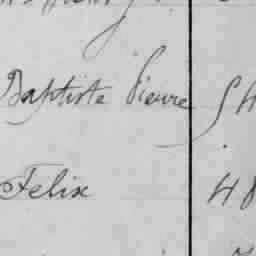 Baptiste Pierre 54
Felix 48